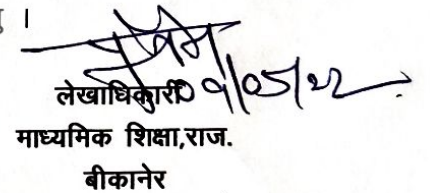 ।
09/05/22
लेखाधिकारी
माध्यमिक शिक्षा,राज.
बीकानेर